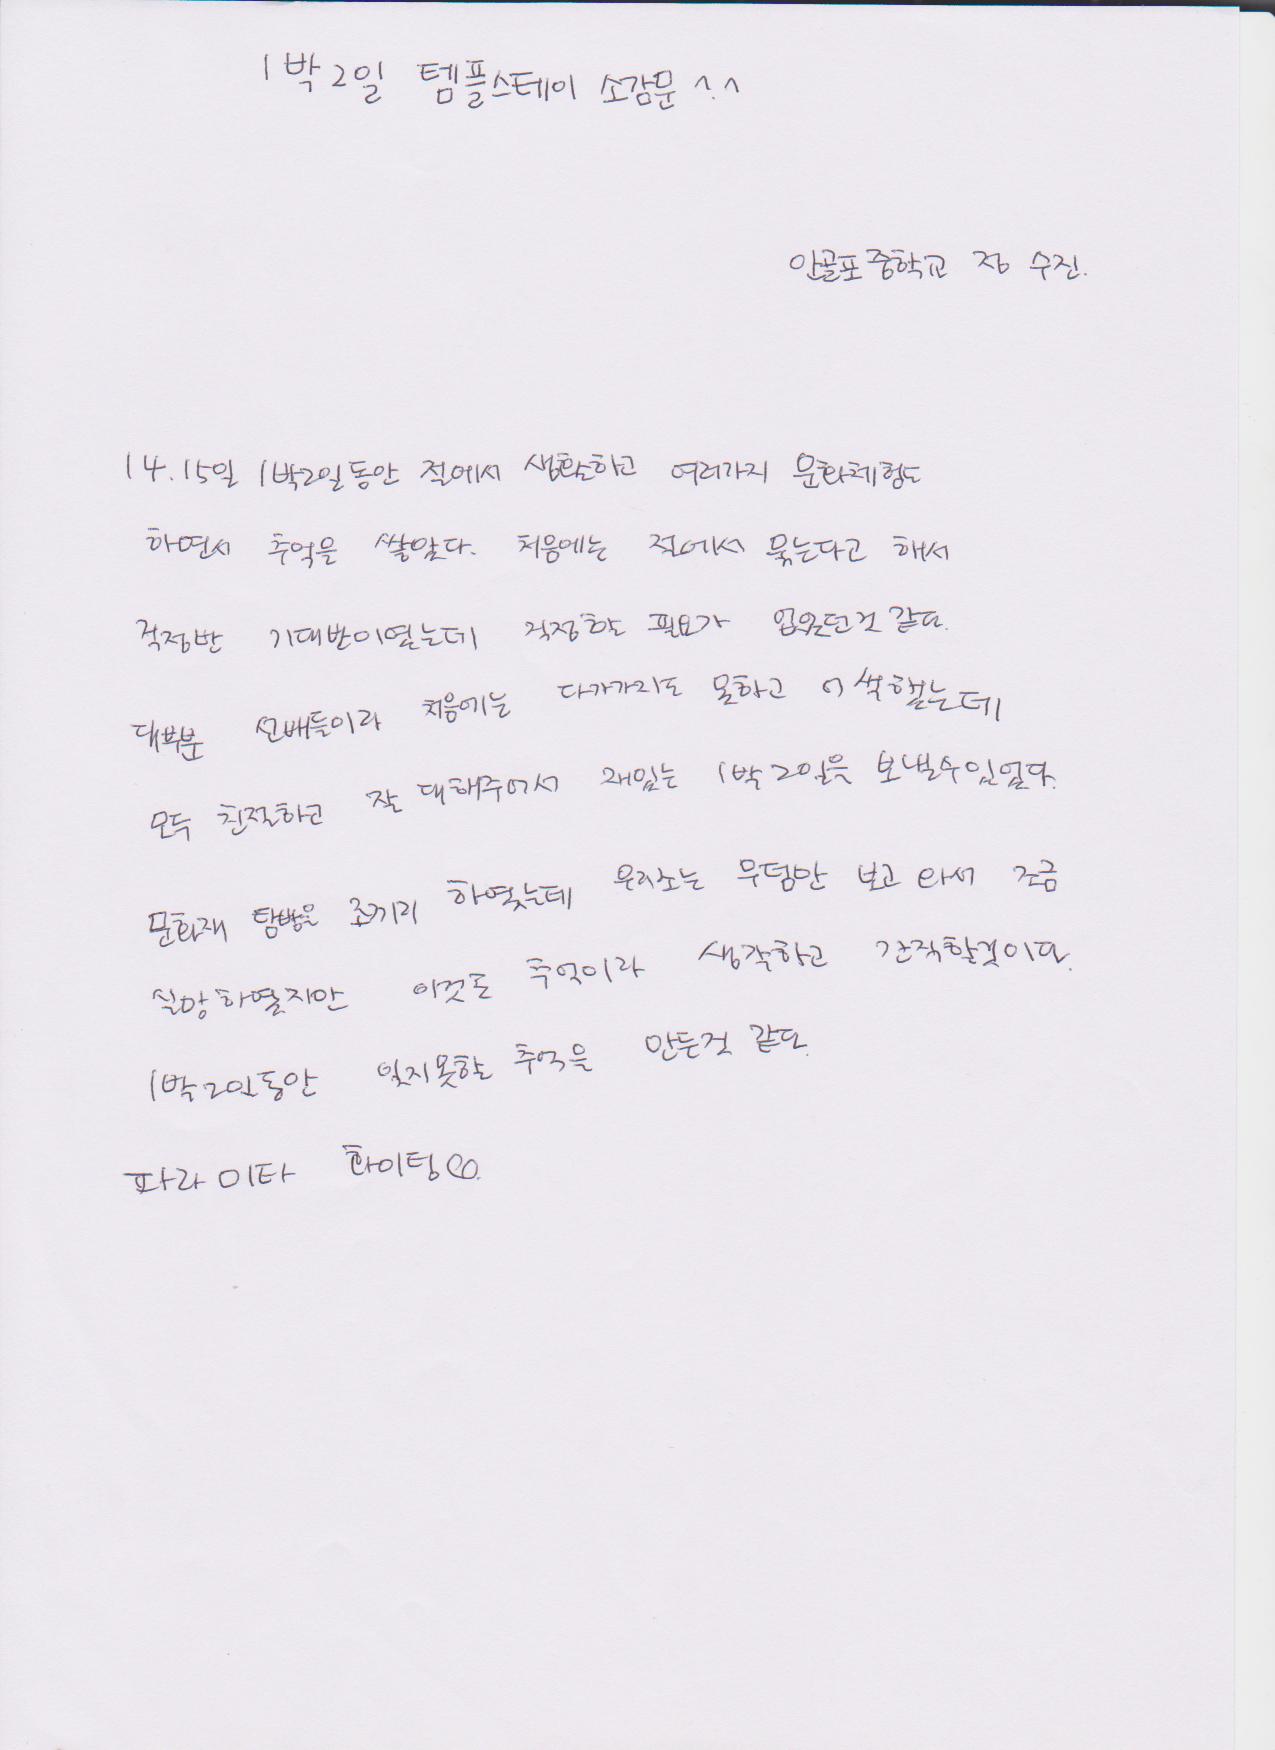 1박2일 템플스테이 소감문 ^.^
안골포중학교 정 수진.
14.15일 1박2일동안 절에서 생활하고 여러가지 문화체험도
하면서 추억을 쌓았다. 처음에는 절에서 묵는다고 해서
걱정반 기대반이였는데 걱정할 필요가 없었던것 같다.
대부분 선배들이라 처음에는 다가가지도 못하고 어색했는데
모두 친절하고 잘 대해주어서 재밌는 1박2일을 보낼수있었다.
문화재 탐방을 조끼리 하였는데 우리조는 무덤만 보고 와서 조금
실망하였지만 이것도 추억이라 생각하고 간직할것이다.
1박2일동안 잊지못할 추억을 만든것 같다.
파라미타 화이팅